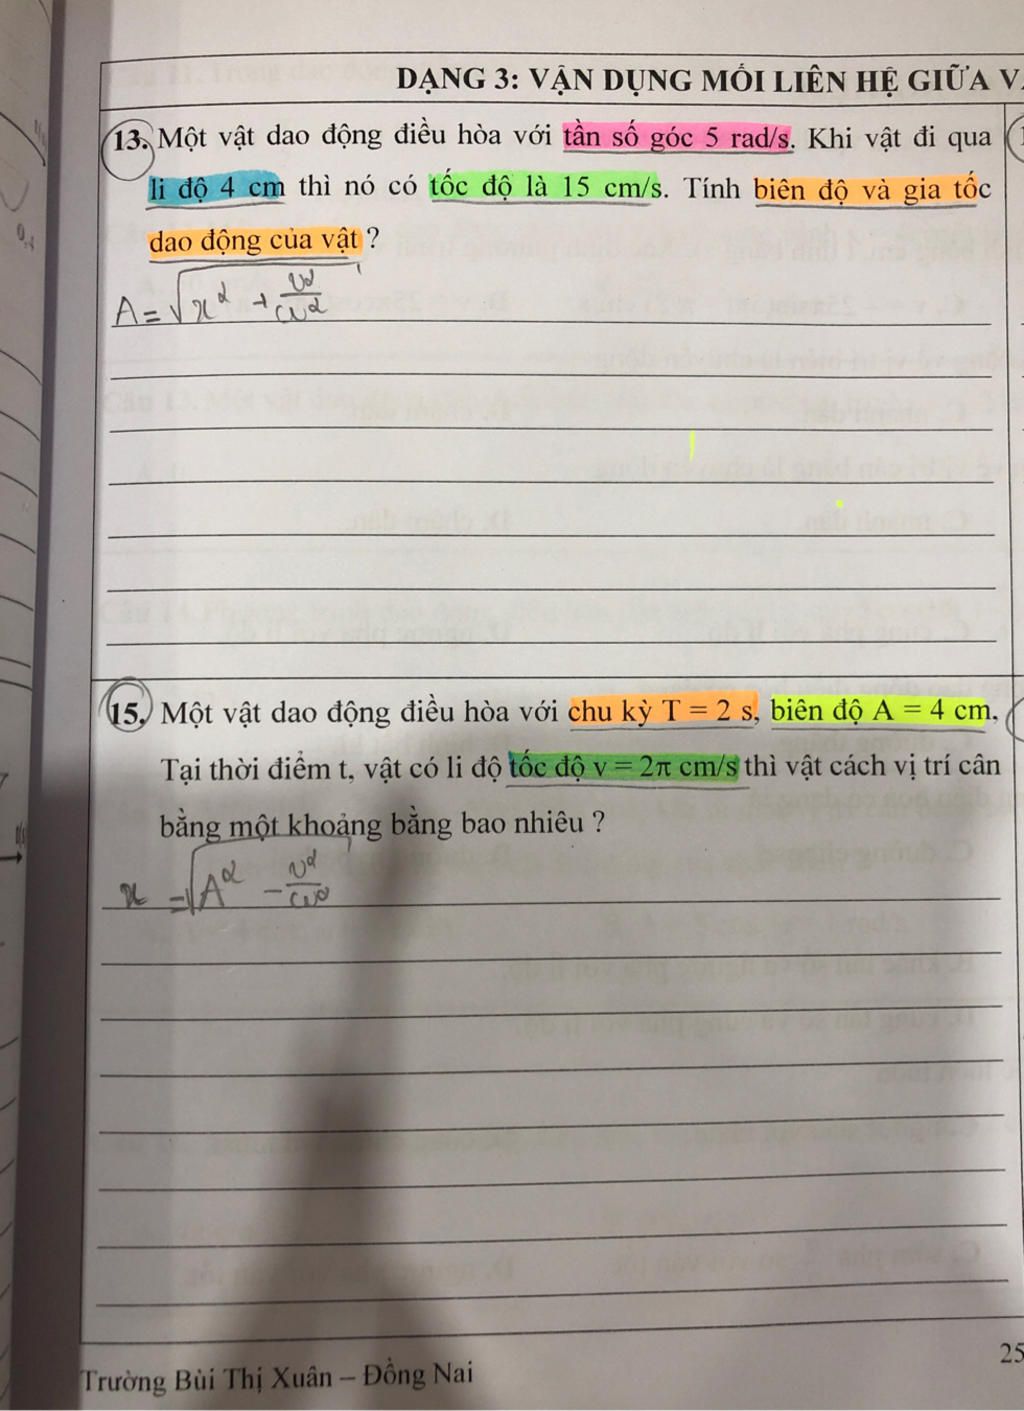 DẠNG 3: VẬN DỤNG MỐI LIÊN HỆ GIỮA V
13. Một vật dao động điều hòa với tần số góc 5 rad/s. Khi vật đi qua
li độ 4 cm thì nó có tốc độ là 15 cm/s. Tính biên độ và gia tốc
dao động của vật ?
A = √x² + v²/ω²
15. Một vật dao động điều hòa với chu kỳ T = 2 s, biên độ A = 4 cm.
Tại thời điểm t, vật có li độ tốc độ v = 2π cm/s thì vật cách vị trí cân
bằng một khoảng bằng bao nhiêu ?
x = √A² − v²/ω²
Trường Bùi Thị Xuân – Đồng Nai
25